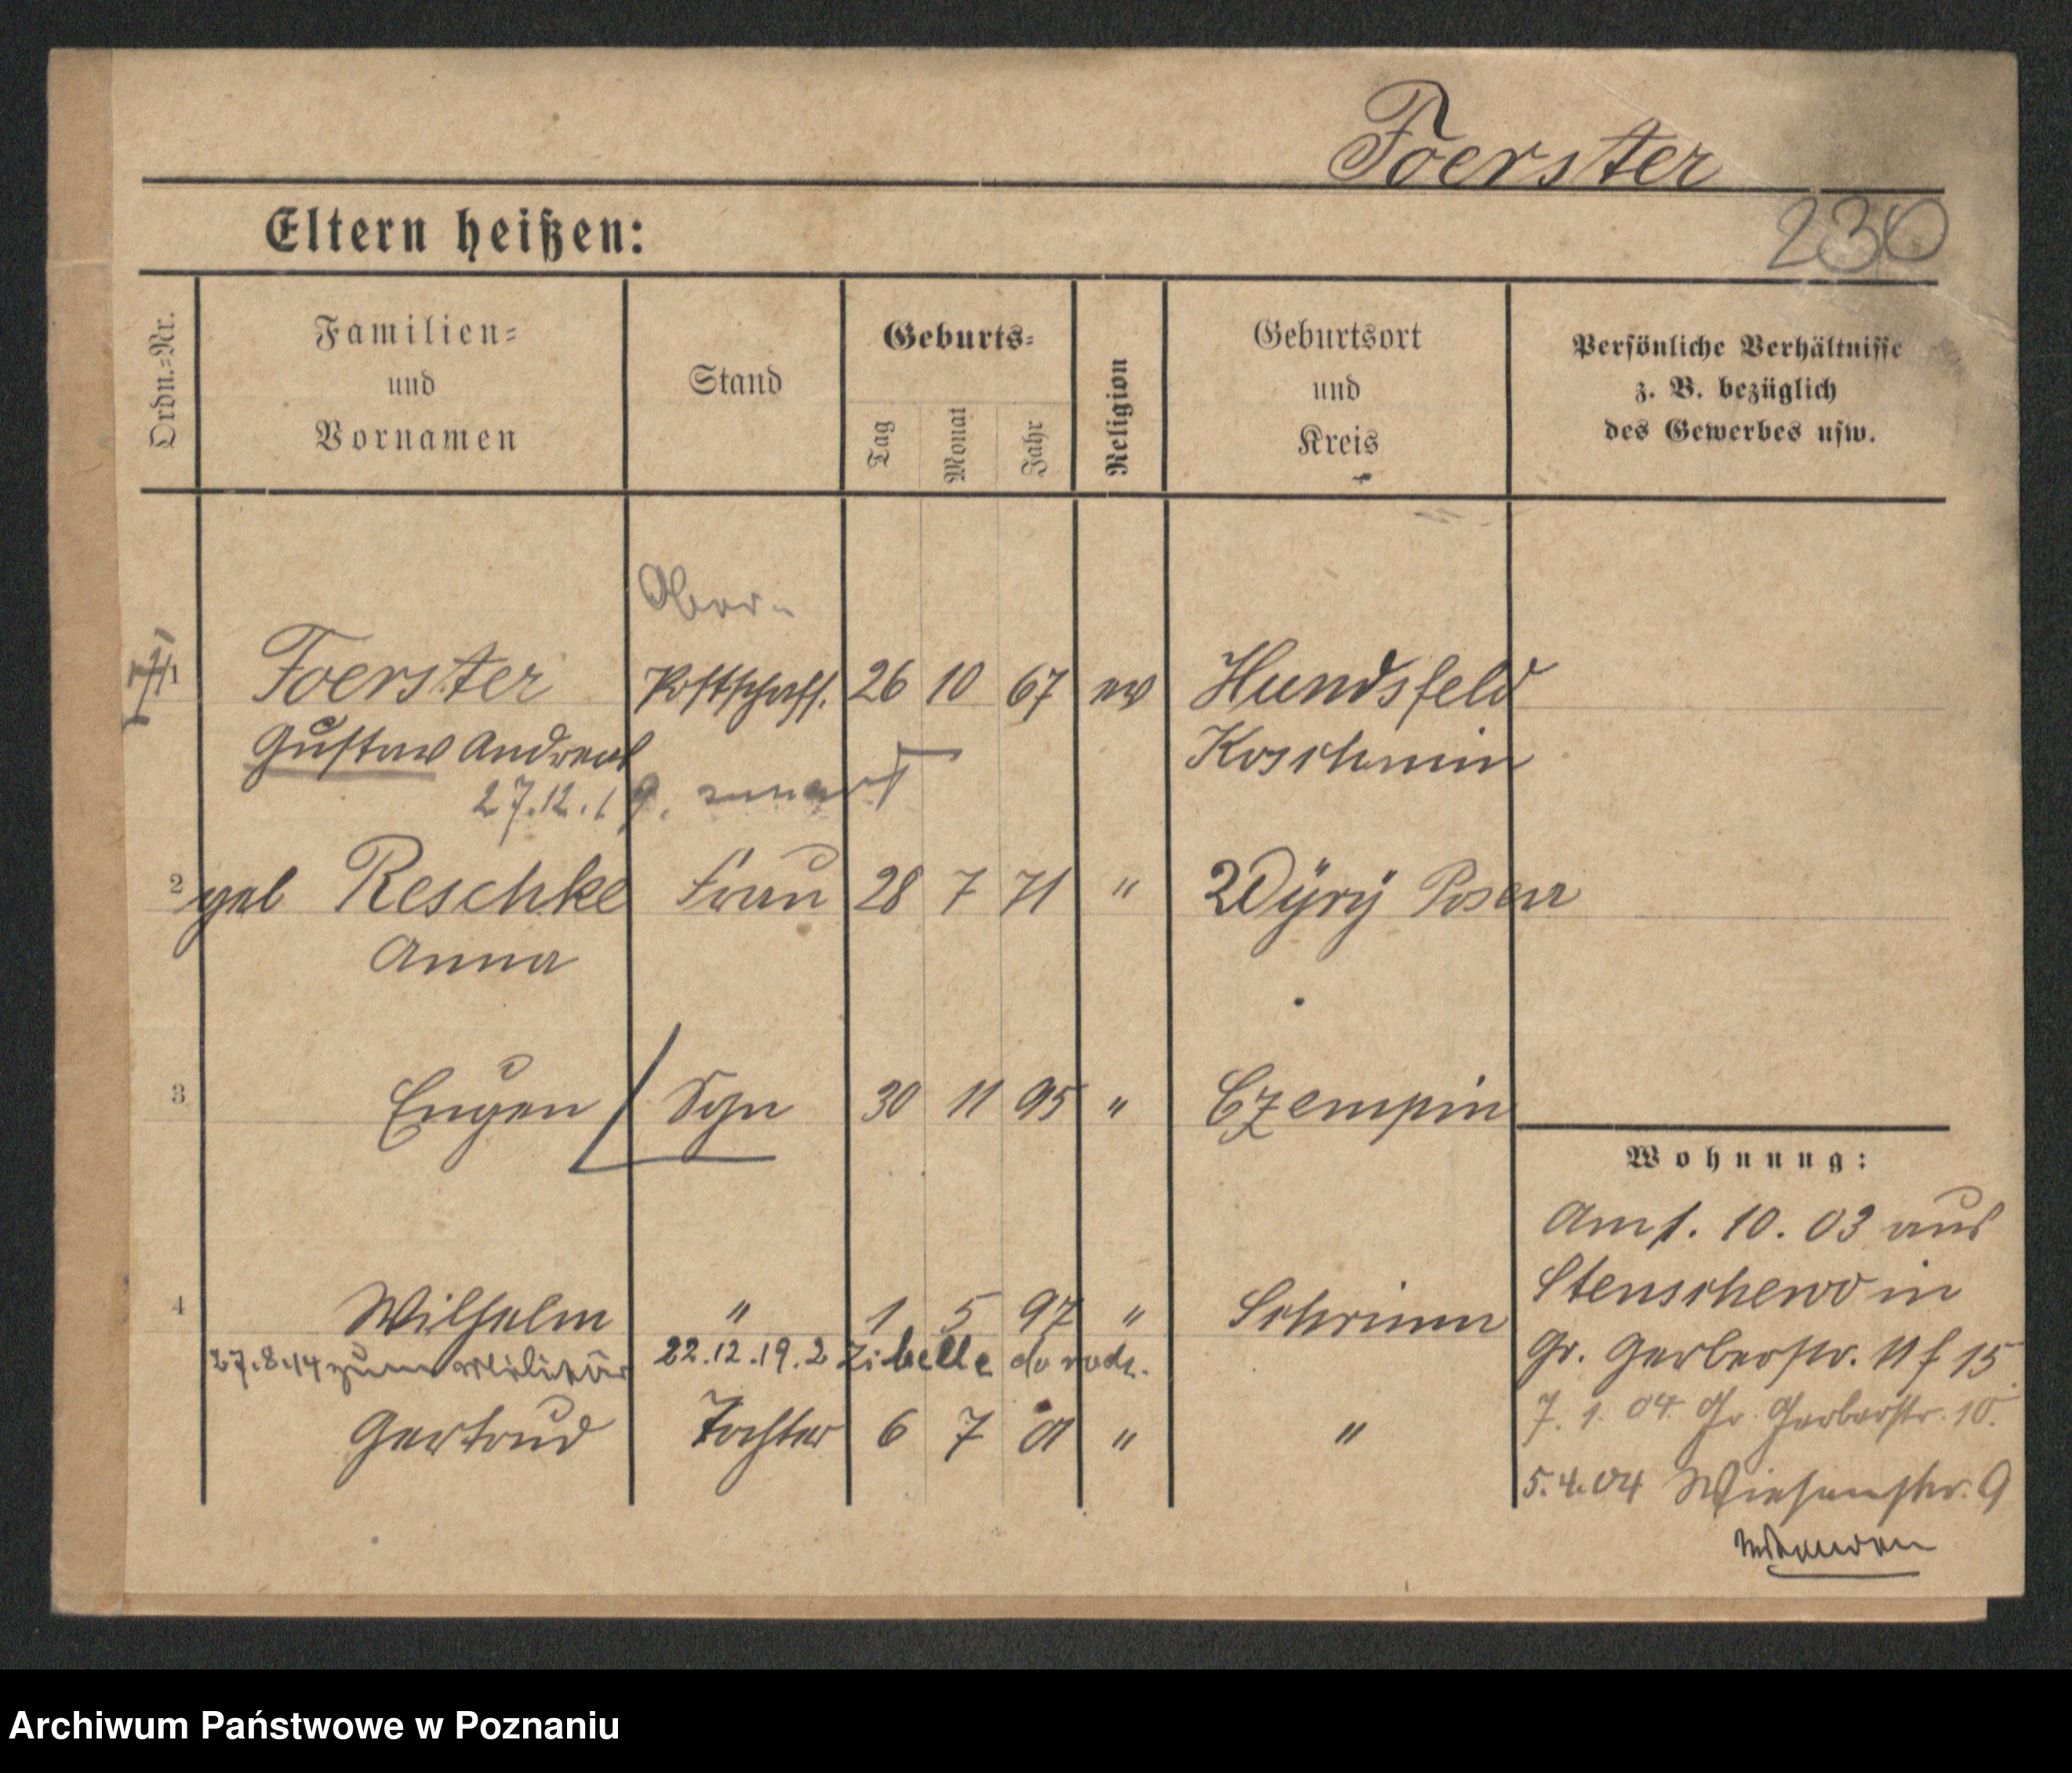 Foerster
230
Eltern heißen:
Ordn.=Nr.
Familien=
und
Vornamen
Stand
Geburts=
Tag
Monat
Jahr
Religion
Geburtsort
und
Kreis
Persönliche Verhältnisse
z. B. bezüglich
des Gewerbes usw.
Ober-
1 Foerster Postschaff. 26 10 67 ev Hundsfeld
Gustav Andreas Koschmin
27.12.19.
2 geb Reschke Frau 28 7 71 " Wÿrÿ Posen
Anna
3 Eugen Sohn 30 11 95 " Czempin
Wohnung:
Am 1. 10. 03 aus
Stenschewo in
4 Wilhelm " 1 5 97 " Schrimm
Gr. Gerberstr. 11 f 15
27.8.14 zum Militär 22.12.19. Zibelle
7. 1. 04 Gr. Gerberstr. 10.
Gertrud Tochter 6 7 01 " "
5.4.04 Wiesenstr. 9
wenden
Archiwum Państwowe w Poznaniu